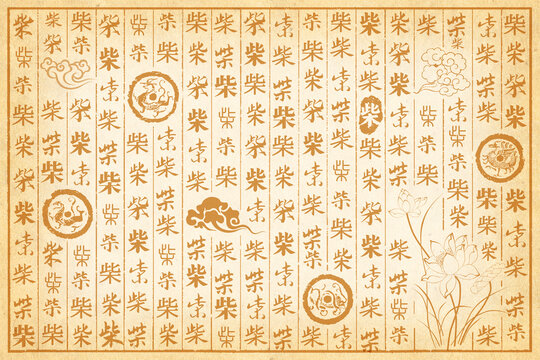 柴柴柴柴柴柴柴柴柴柴柴
柴柴柴柴柴柴柴柴柴
柴柴柴柴柴柴柴柴
柴柴柴柴柴柴柴柴
柴柴柴柴柴柴柴柴柴柴
柴柴柴柴柴柴柴柴柴柴柴
柴柴柴柴柴柴柴柴柴
柴柴柴柴柴柴柴柴柴柴柴
柴柴柴柴柴柴柴柴柴柴柴
柴柴柴柴柴柴柴柴柴柴柴柴
柴柴柴柴柴柴柴柴柴柴
柴柴柴柴柴柴柴柴柴柴
柴柴柴柴柴柴柴柴柴柴
柴柴柴柴柴柴柴柴柴柴柴
柴柴柴柴柴柴柴柴柴柴柴
柴柴柴柴柴柴柴柴柴柴柴
柴柴柴柴柴柴柴柴
柴柴柴柴柴柴柴柴柴柴柴